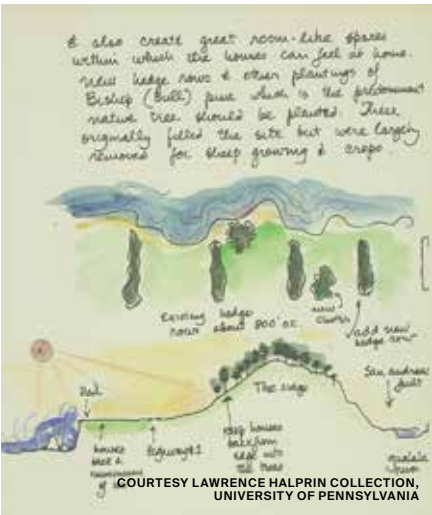 & also create great room-like spaces
within which the houses can feel at home.
New hedge rows & other plantings of
Bishop (Bull) pine which is the predominent
native tree should be planted. These
originally filled the site but were largely
removed for sheep growing & crops
Existing hedge
rows about 800' o.c.
new
cluster
add new
hedge row
The ridge
San Andreas
fault
Trail
houses
back a
of
highway 1
keep houses
back from
edge into
the trees
Gualala
River
COURTESY LAWRENCE HALPRIN COLLECTION,
UNIVERSITY OF PENNSYLVANIA